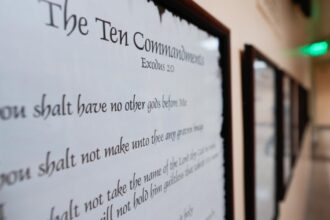 The Ten Commandments
Exodus 20
ou shalt have no other gods before Me
ou shalt not make unto thee any graven image
shalt not take the name of the Lord thy God in
will not hold him guiltless that taketh
holy